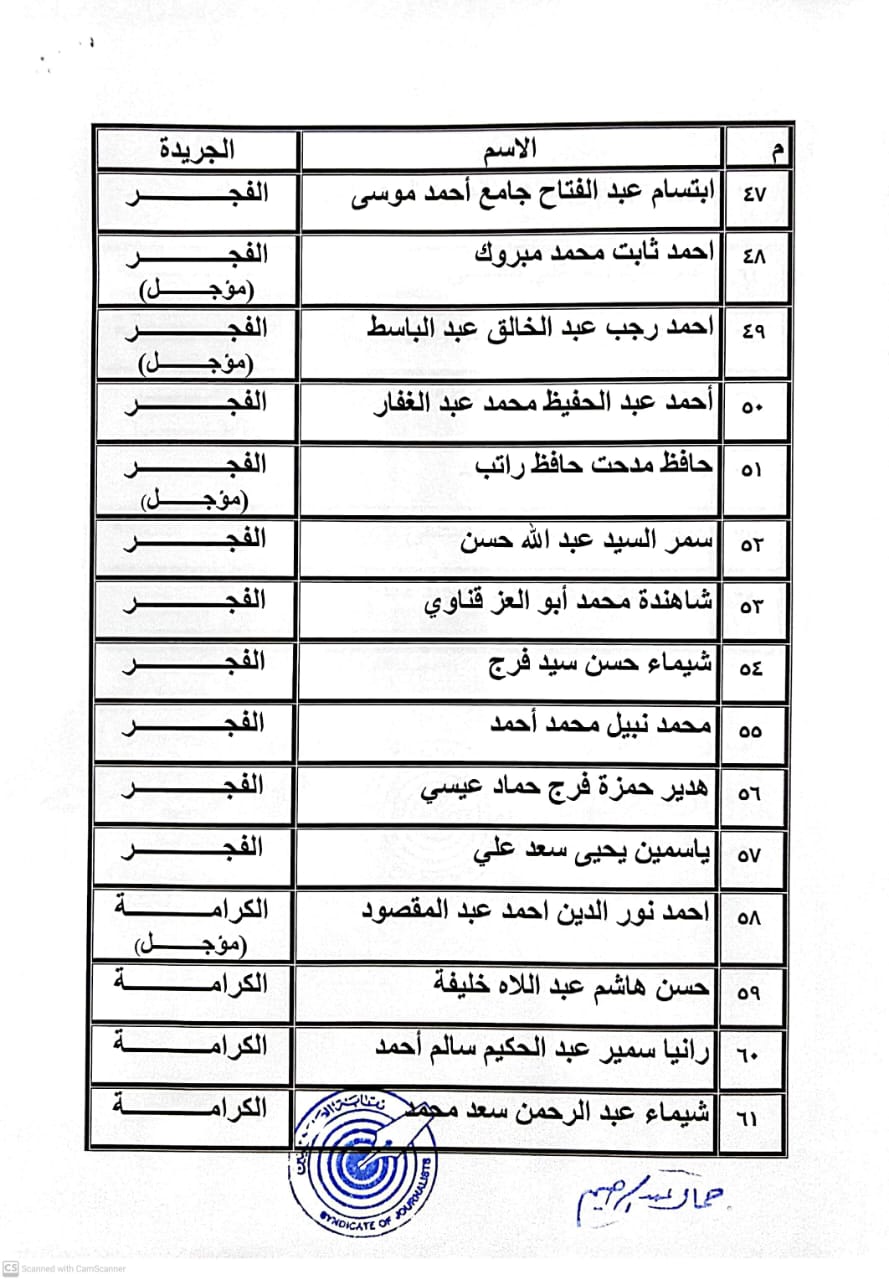 م الاسم الجريدة
٤٧ ابتسام عبد الفتاح جامع أحمد موسى الفجـــــــر
٤٨ احمد ثابت محمد مبروك الفجـــــــر
(مؤجـــل)
٤٩ احمد رجب عبد الخالق عبد الباسط الفجـــــــر
(مؤجـــل)
٥٠ أحمد عبد الحفيظ محمد عبد الغفار الفجـــــــر
٥١ حافظ مدحت حافظ راتب الفجـــــــر
(مؤجـــل)
٥٢ سمر السيد عبد الله حسن الفجـــــــر
٥٣ شاهندة محمد أبو العز قناوي الفجـــــــر
٥٤ شيماء حسن سيد فرج الفجـــــــر
٥٥ محمد نبيل محمد أحمد الفجـــــــر
٥٦ هدير حمزة فرج حماد عيسي الفجـــــــر
٥٧ ياسمين يحيى سعد علي الفجـــــــر
٥٨ احمد نور الدين احمد عبد المقصود الكرامـــــــة
(مؤجـــل)
٥٩ حسن هاشم عبد اللاه خليفة الكرامـــــــة
٦٠ رانيا سمير عبد الحكيم سالم أحمد الكرامـــــــة
٦١ شيماء عبد الرحمن سعد محمد الكرامـــــــة
نقابة
SYNDICATE OF JOURNALISTS
جمال عبد الرحيم
CS Scanned with CamScanner